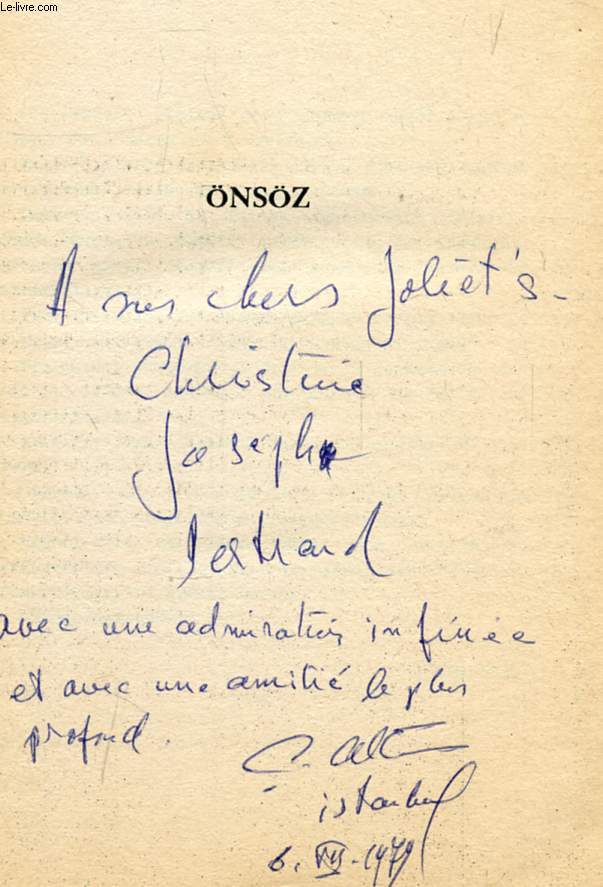 © Le-livre.com
ÖNSÖZ
A mes chers Joliet's-
Christine
Joseph
Bertrand
avec une admiration infinie
et avec une amitié le plus
profond.
istanbul
6. VII. 1979